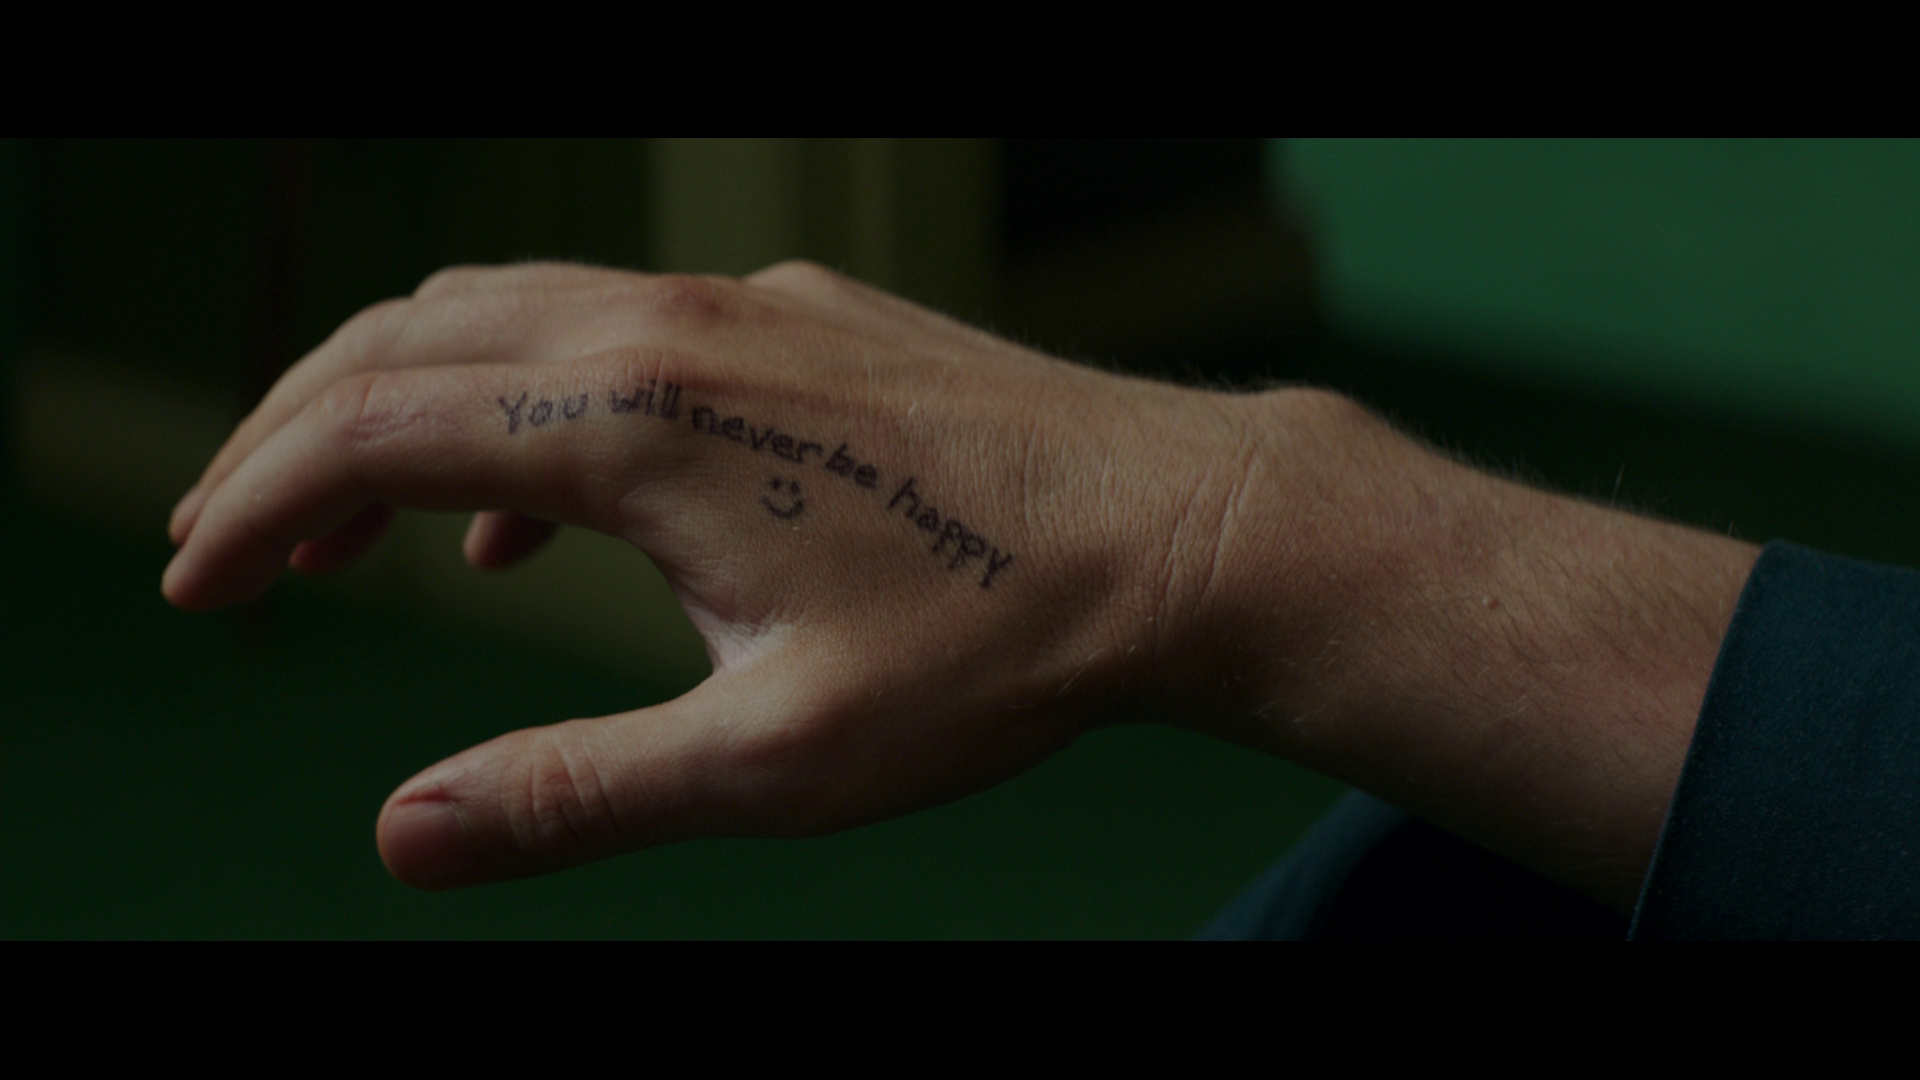 You will never be happy
:)